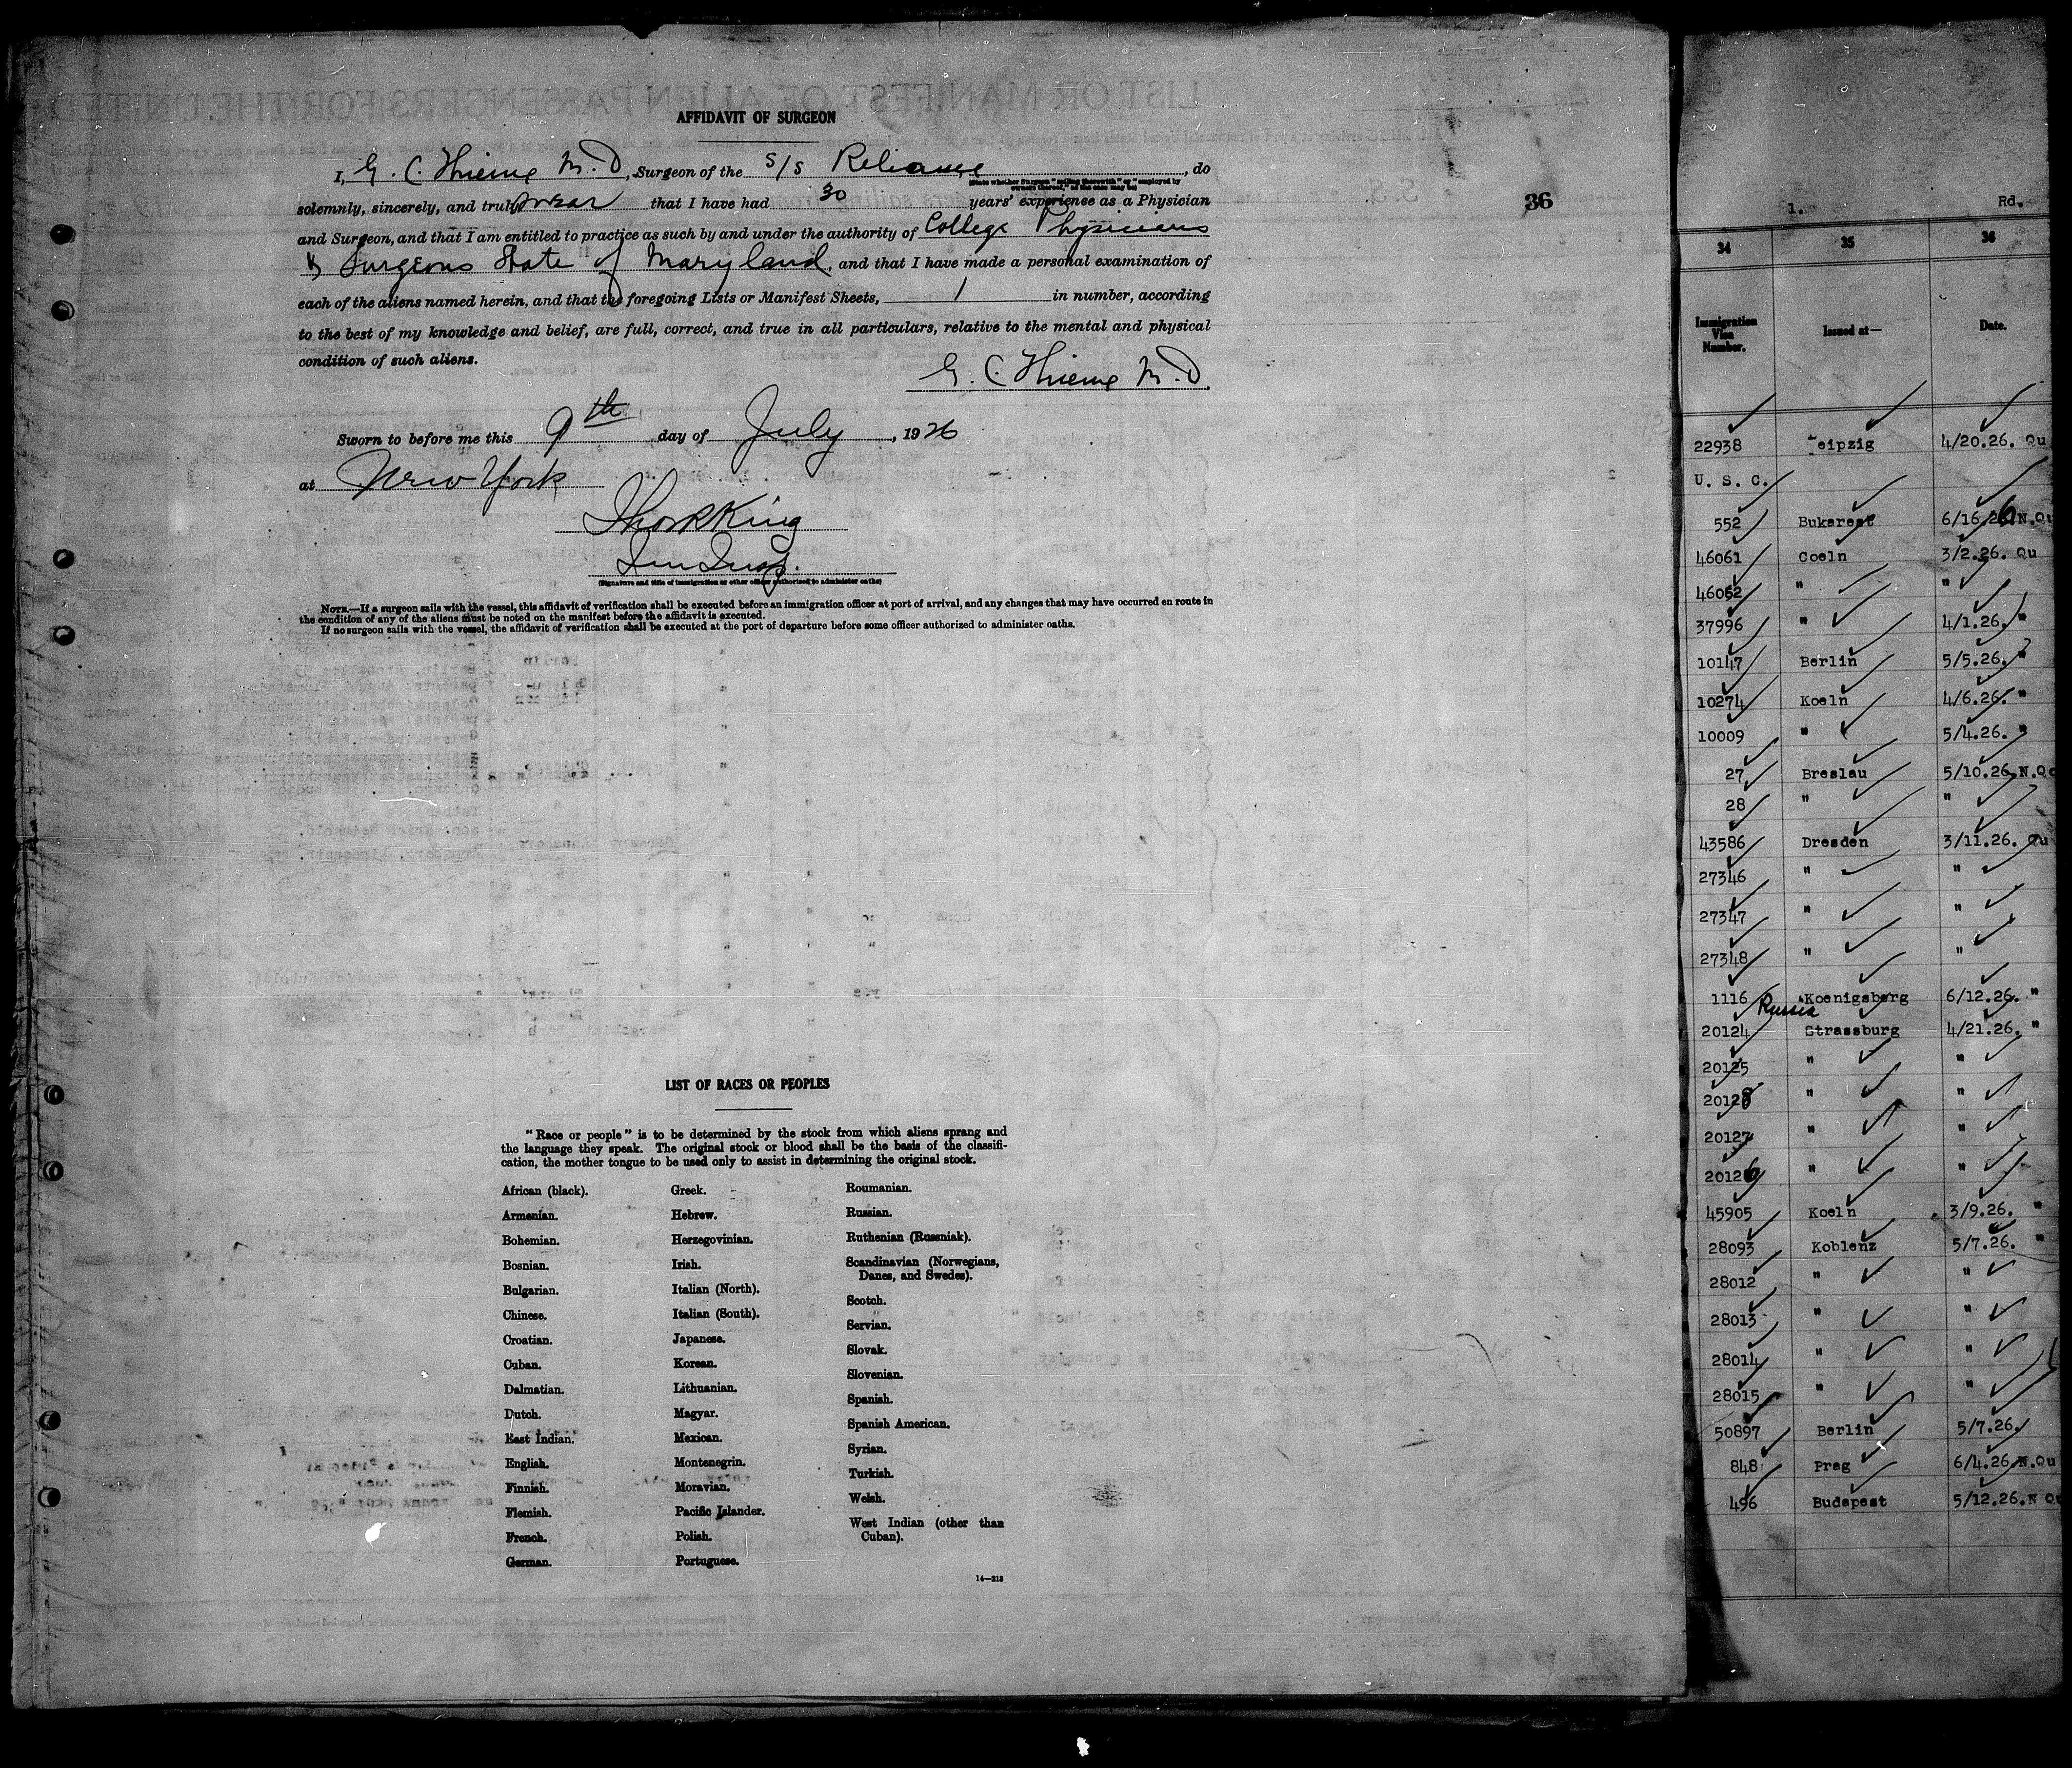 AFFIDAVIT OF SURGEON
I, G. C. Thieme M.D., Surgeon of the S/S Reliance, do
(State whether Surgeon "sailing therewith" or "employed by
owners thereof," as the case may be)
solemnly, sincerely, and truly swear that I have had 30 years' experience as a Physician
and Surgeon, and that I am entitled to practice as such by and under the authority of College Physicians
& Surgeons State of Maryland, and that I have made a personal examination of
each of the aliens named herein, and that the foregoing Lists or Manifest Sheets, 1 in number, according
to the best of my knowledge and belief, are full, correct, and true in all particulars, relative to the mental and physical
condition of such aliens.
G. C. Thieme M.D.
Sworn to before me this 9th day of July, 1926
at New York
King
(Signature and title of immigration or other officer authorized to administer oaths)
NOTE.—If a surgeon sails with the vessel, this affidavit of verification shall be executed before an immigration officer at port of arrival, and any changes that may have occurred en route in
the condition of any of the aliens must be noted on the manifest before the affidavit is executed.
If no surgeon sails with the vessel, the affidavit of verification shall be executed at the port of departure before some officer authorized to administer oaths.
36
LIST OF RACES OR PEOPLES
"Race or people" is to be determined by the stock from which aliens sprang and
the language they speak. The original stock or blood shall be the basis of the classifi-
cation, the mother tongue to be used only to assist in determining the original stock.
African (black).
Armenian.
Bohemian.
Bosnian.
Bulgarian.
Chinese.
Croatian.
Cuban.
Dalmatian.
Dutch.
East Indian.
English.
Finnish.
Flemish.
French.
German.
Greek.
Hebrew.
Herzegovinian.
Irish.
Italian (North).
Italian (South).
Japanese.
Korean.
Lithuanian.
Magyar.
Mexican.
Montenegrin.
Moravian.
Pacific Islander.
Polish.
Portuguese.
Roumanian.
Russian.
Ruthenian (Russniak).
Scandinavian (Norwegians,
Danes, and Swedes).
Scotch.
Servian.
Slovak.
Slovenian.
Spanish.
Spanish American.
Syrian.
Turkish.
Welsh.
West Indian (other than
Cuban).
14—213
1. Rd.
34 35 36
Immigration
Visa
Number. Issued at— Date.
22938 Leipzig 4/20.26. Qu
U. S. C.
552 Bukarest 6/16.26. N.Qu
46061 Coeln 3/2.26. Qu
46062 " "
37996 " 4/1.26. "
10147 Berlin 5/5.26. "
10274 Koeln 4/6.26. "
10009 " 5/4.26. "
27 Breslau 5/10.26. N.Qu
28 " "
43586 Dresden 3/11.26. Qu
27346 " "
27347 " "
27348 " "
1116 Russia Koenigsberg 6/12.26. "
20124 Strassburg 4/21.26. "
20125 " "
20128 " "
20127 " "
20126 " "
45905 Koeln 3/9.26. "
28093 Koblenz 5/7.26. "
28012 " "
28013 " "
28014 " "
28015 " "
50897 Berlin 5/7.26.
848 Prag 6/4.26. N.Qu
496 Budapest 5/12.26. N Qu